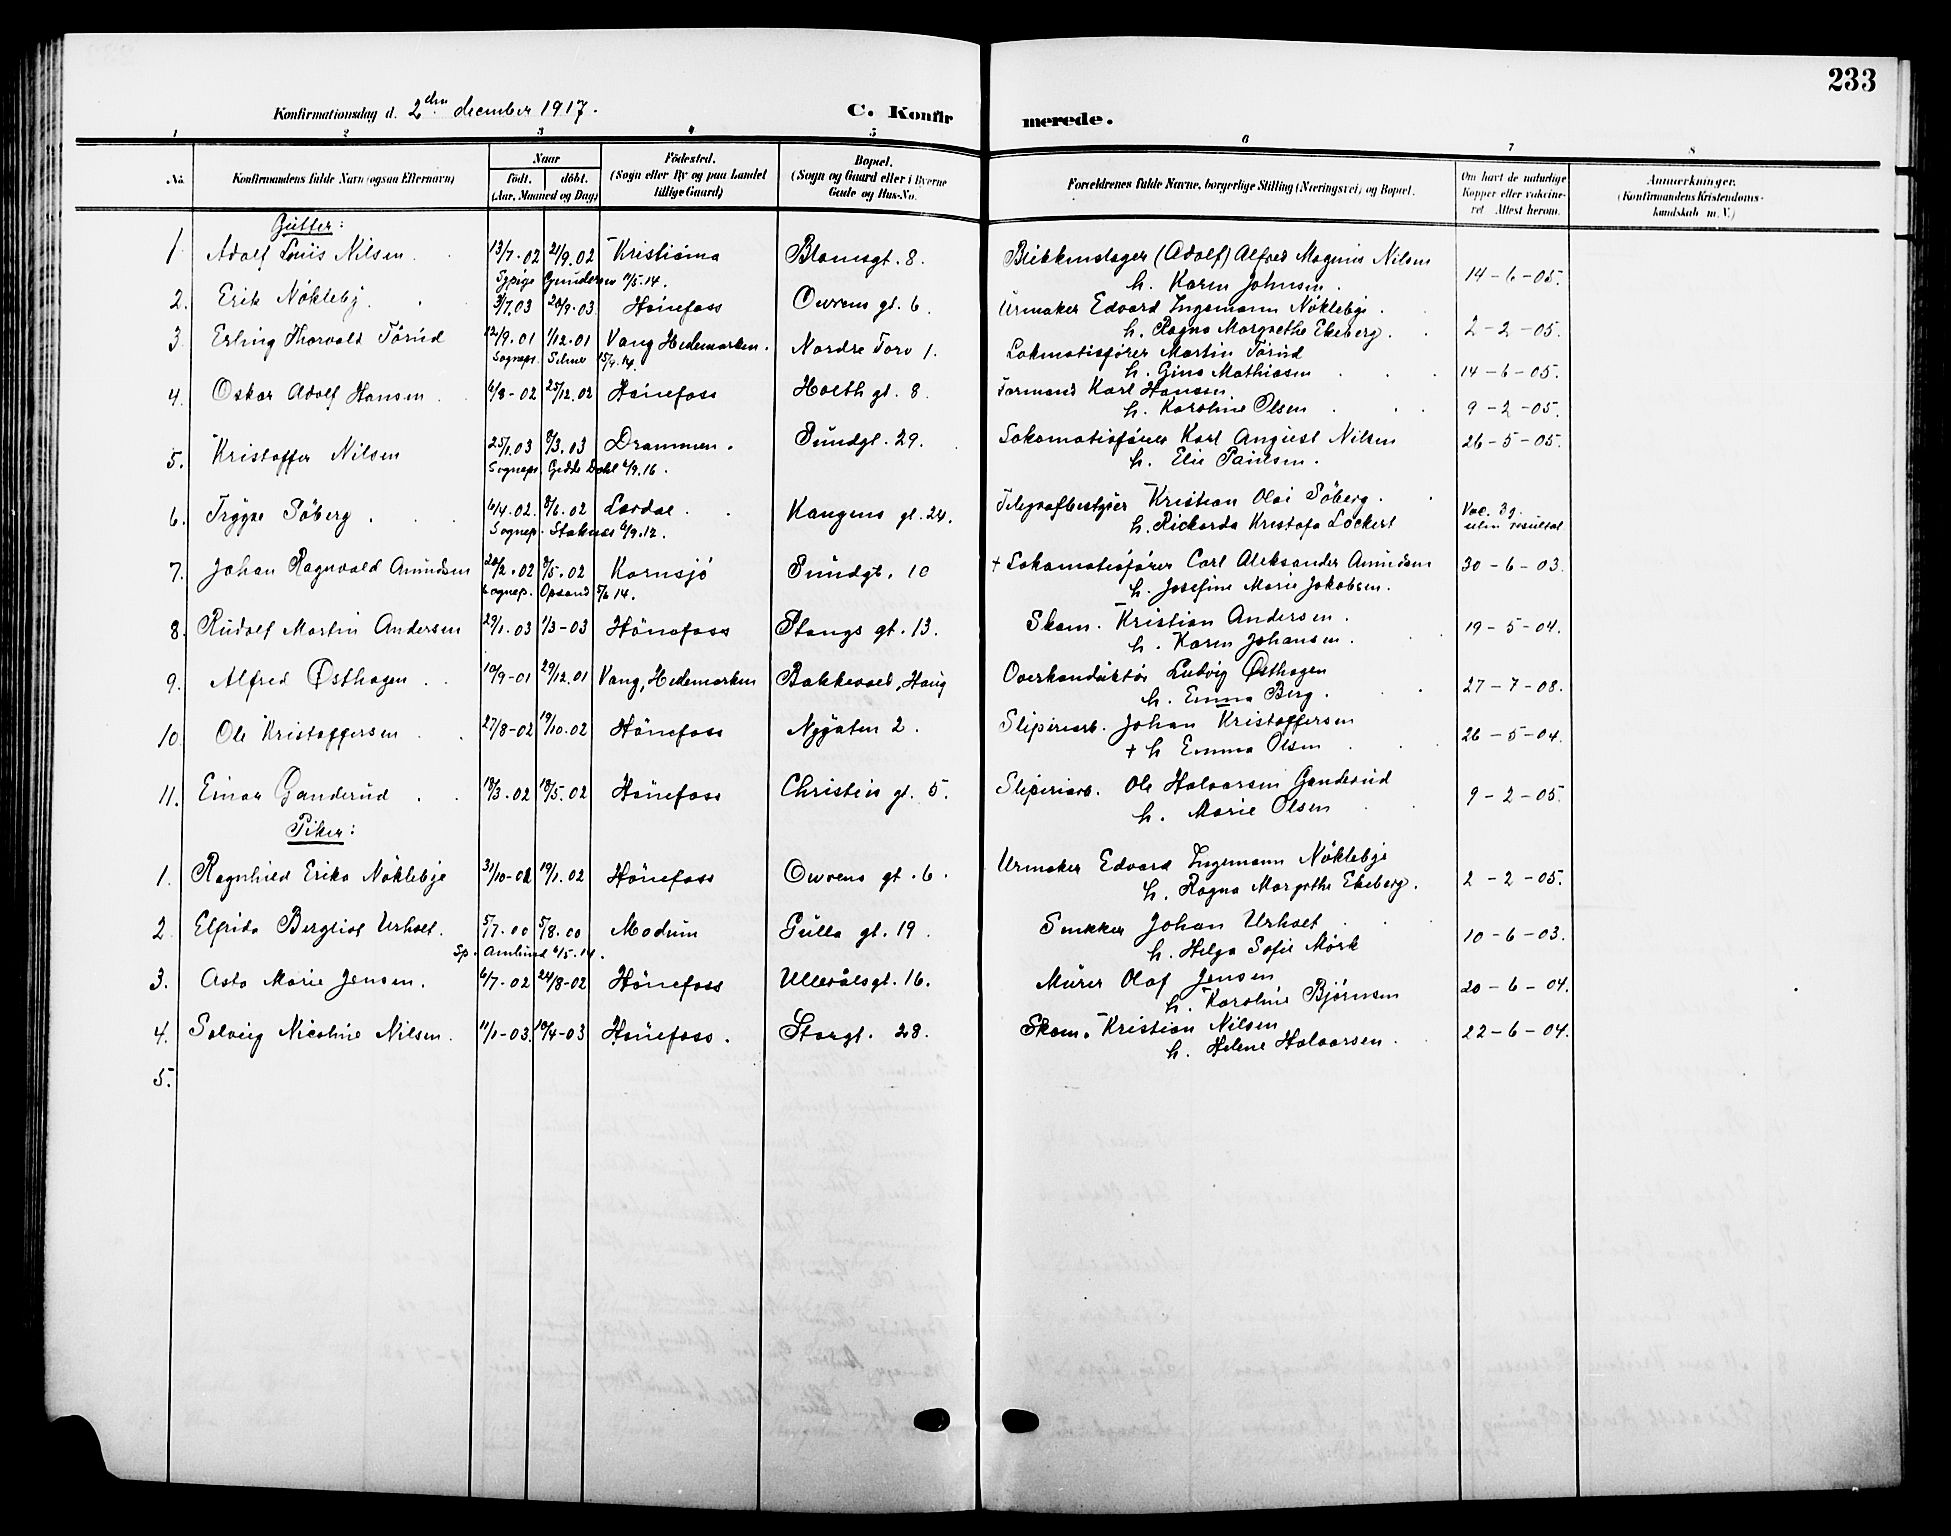 233
Konfirmationsdag d. 2den december 1917.
C. Konfirmerede.
1 2 3 4 5 6 7 8
No. Konfirmandens fulde Navn (ogsaa Efternavn) Naar födt. döbt. (Aar, Maaned og Dag) Födested. (Sogn eller By og paa Landet tillige Gaard) Bopæl. (Sogn og Gaard eller i Byerne Gade og Hus-No. Forældrenes fulde Navne, borgerlige Stilling (Næringsvei) og Bopæl. Om havt de naturlige Kopper eller vakcineret. Attest herom. Anmærkninger. (Konfirmandens Kristendomskundskab m. V.)
Gutter:
1 Adolf Louis Nilsen. 13/7-02 21/9.02 Kristiania Blomsgt. 8. Blikkenslager (Adolf) Alfred Magnus Nilsen
h. Karen Johnsen. 14-6-05.
Gunderssen 11/5.14.
2. Erik Nöklebÿ. 3/7.03 20/9.03 Hönefoss Owrens gt. 6. Urmaker Edvard Ingemann Nöklebye.
h. Ragna Margrethe Ekeberg. 2-2-05.
3. Erling Thorvald Törud 12/9.01 1/12.01 Vang Hedemarken. Nordre Torv 1. Lokomotivfører Martin Törud
Sognepr. Selmer 15/9.14. h. Gina Mathiesen 14-6-05.
4. Oskar Adolf Hansen. 6/8-02 25/12.02 Hönefoss Hoelth gt. 8. Formand Karl Hansen.
h. Karoline Olsen 9-2-05.
5. Kristoffer Nilsen 25/1.03 8/3.03 Drammen. Sundgt. 29. Lokomotivfører Karl August Nilsen 26-5-05.
Sognepr. Dahl 6/9.16. h. Elie Paulsen.
6. Trygve Söberg. 6/4.02. 8/6.02 Lardal. Kongens gt. 24. Telegrafbestyrer Kristian Olai Söberg.
Sognepr. 6/9.12. h. Rickarda Kristofa Lockert Vac. 3 g. uten resultat
7. Johan Ragnvald Amundsen 20/2.02 8/5.02 Kornsjö Sundgt. 10 + Lokomotivfører Carl Aleksander Amundsen 30-6-03.
Sognepr. Opsand 5/6 14. h. Josefine Marie Jakobsen.
8. Rudolf Martin Andersen 29/1.03 1/3-03 Hönefoss Stangs gt. 13. Skom. Kristian Andersen.
h. Karen Johansen. 19-5-04.
9. Alfred Østhagen 10/9-01 29/12.01 Vang, Hedemarken Bakkevold, Haug Overkonduktör Ludvig Østhagen
h. Emma Berg. 27-7-08.
10. Ole Kristoffersen 27/8-02 19/10.02 Hönefoss Nygaten 2. Sliperiarb. Johan Kristoffersen
+ h Emma Olsen 26-5-04.
11. Einar Ganderud 18/3.02 18/5.02 Hönefoss Christies gt. 5. Sliperiarb. Ole Halvorsen Ganderud
h. Marie Olsen 9-2-05.
Piker:
1. Ragnhild Erika Nöklebye 31/10-01 19/1.02 Hönefoss Owrens gt. 6. Urmaker Edvard Ingemann Nöklebye
h. Ragna Margrethe Ekeberg. 2-2-05.
2. Elfrida Bergliot Urholt. 5/7.00 5/8.00 Modum Gulla gt. 19. Snekker Johan Urholt
Sp. Amlund 6/5.14. h. Helga Sofie Mörk 10-6-03.
3. Asta Marie Jensen. 6/7-02 24/8-02 Hönefoss Ullevålsgt. 16. Murer Olaf Jensen
h. Karoline Bjørnsen 20-6-04.
4. Solveig Nicoline Nilsen. 11/1-03. 10/4-03 Hönefoss. Storgt. 28. Skom. Kristian Nilsen
h. Helene Halvorsen. 22-6-04.
5.